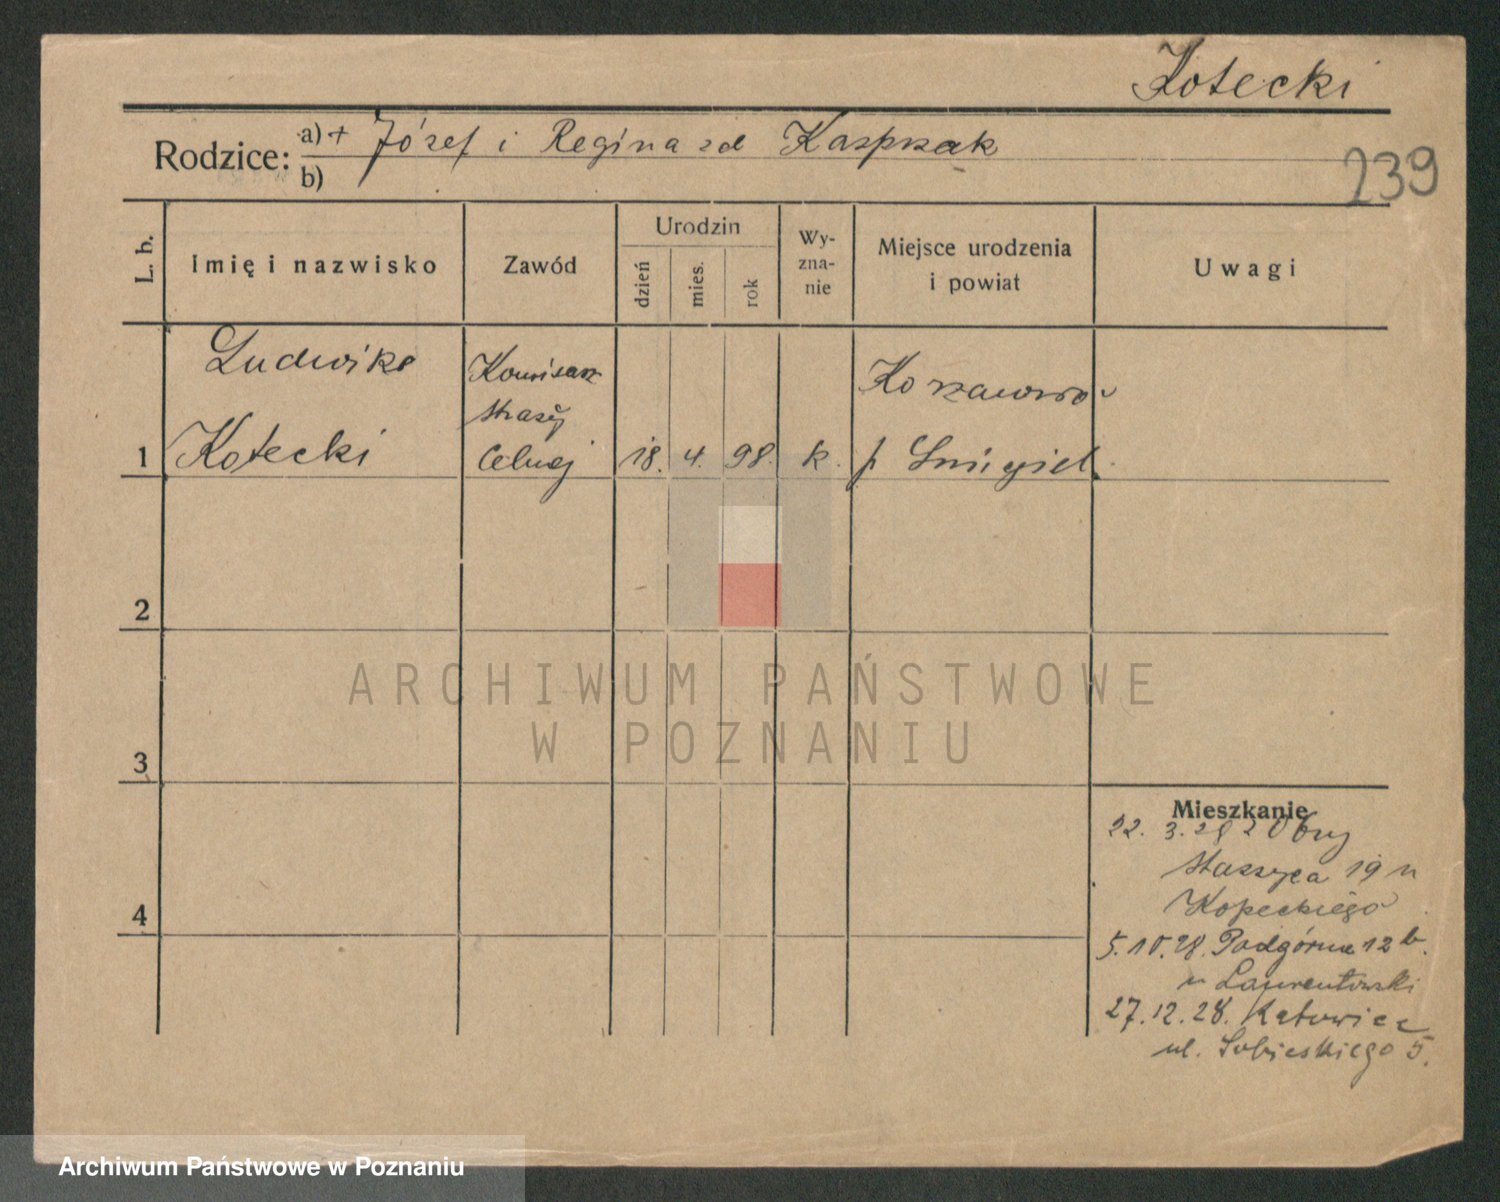 Kotecki
Rodzice: a) + Józef i Regina zd Kasprzak
b)
239
L. b.
Imię i nazwisko
Zawód
Urodzin
dzień
mies.
rok
Wy-
zna-
nie
Miejsce urodzenia
i powiat
Uwagi
Ludwik
Komisarz
straży
1 Kotecki Celnej 18. 4. 98. k. p Śmigiel
2
3
4
ARCHIWUM PAŃSTWOWE
W POZNANIU
Mieszkanie
22. 3. 28 z
Staszyca 19 u
Kopeckiego
5.10.28. Podgórna 12 b.
u Laurentowski
27.12.28. Katowice
ul. Sobieskiego 5.
Archiwum Państwowe w Poznaniu